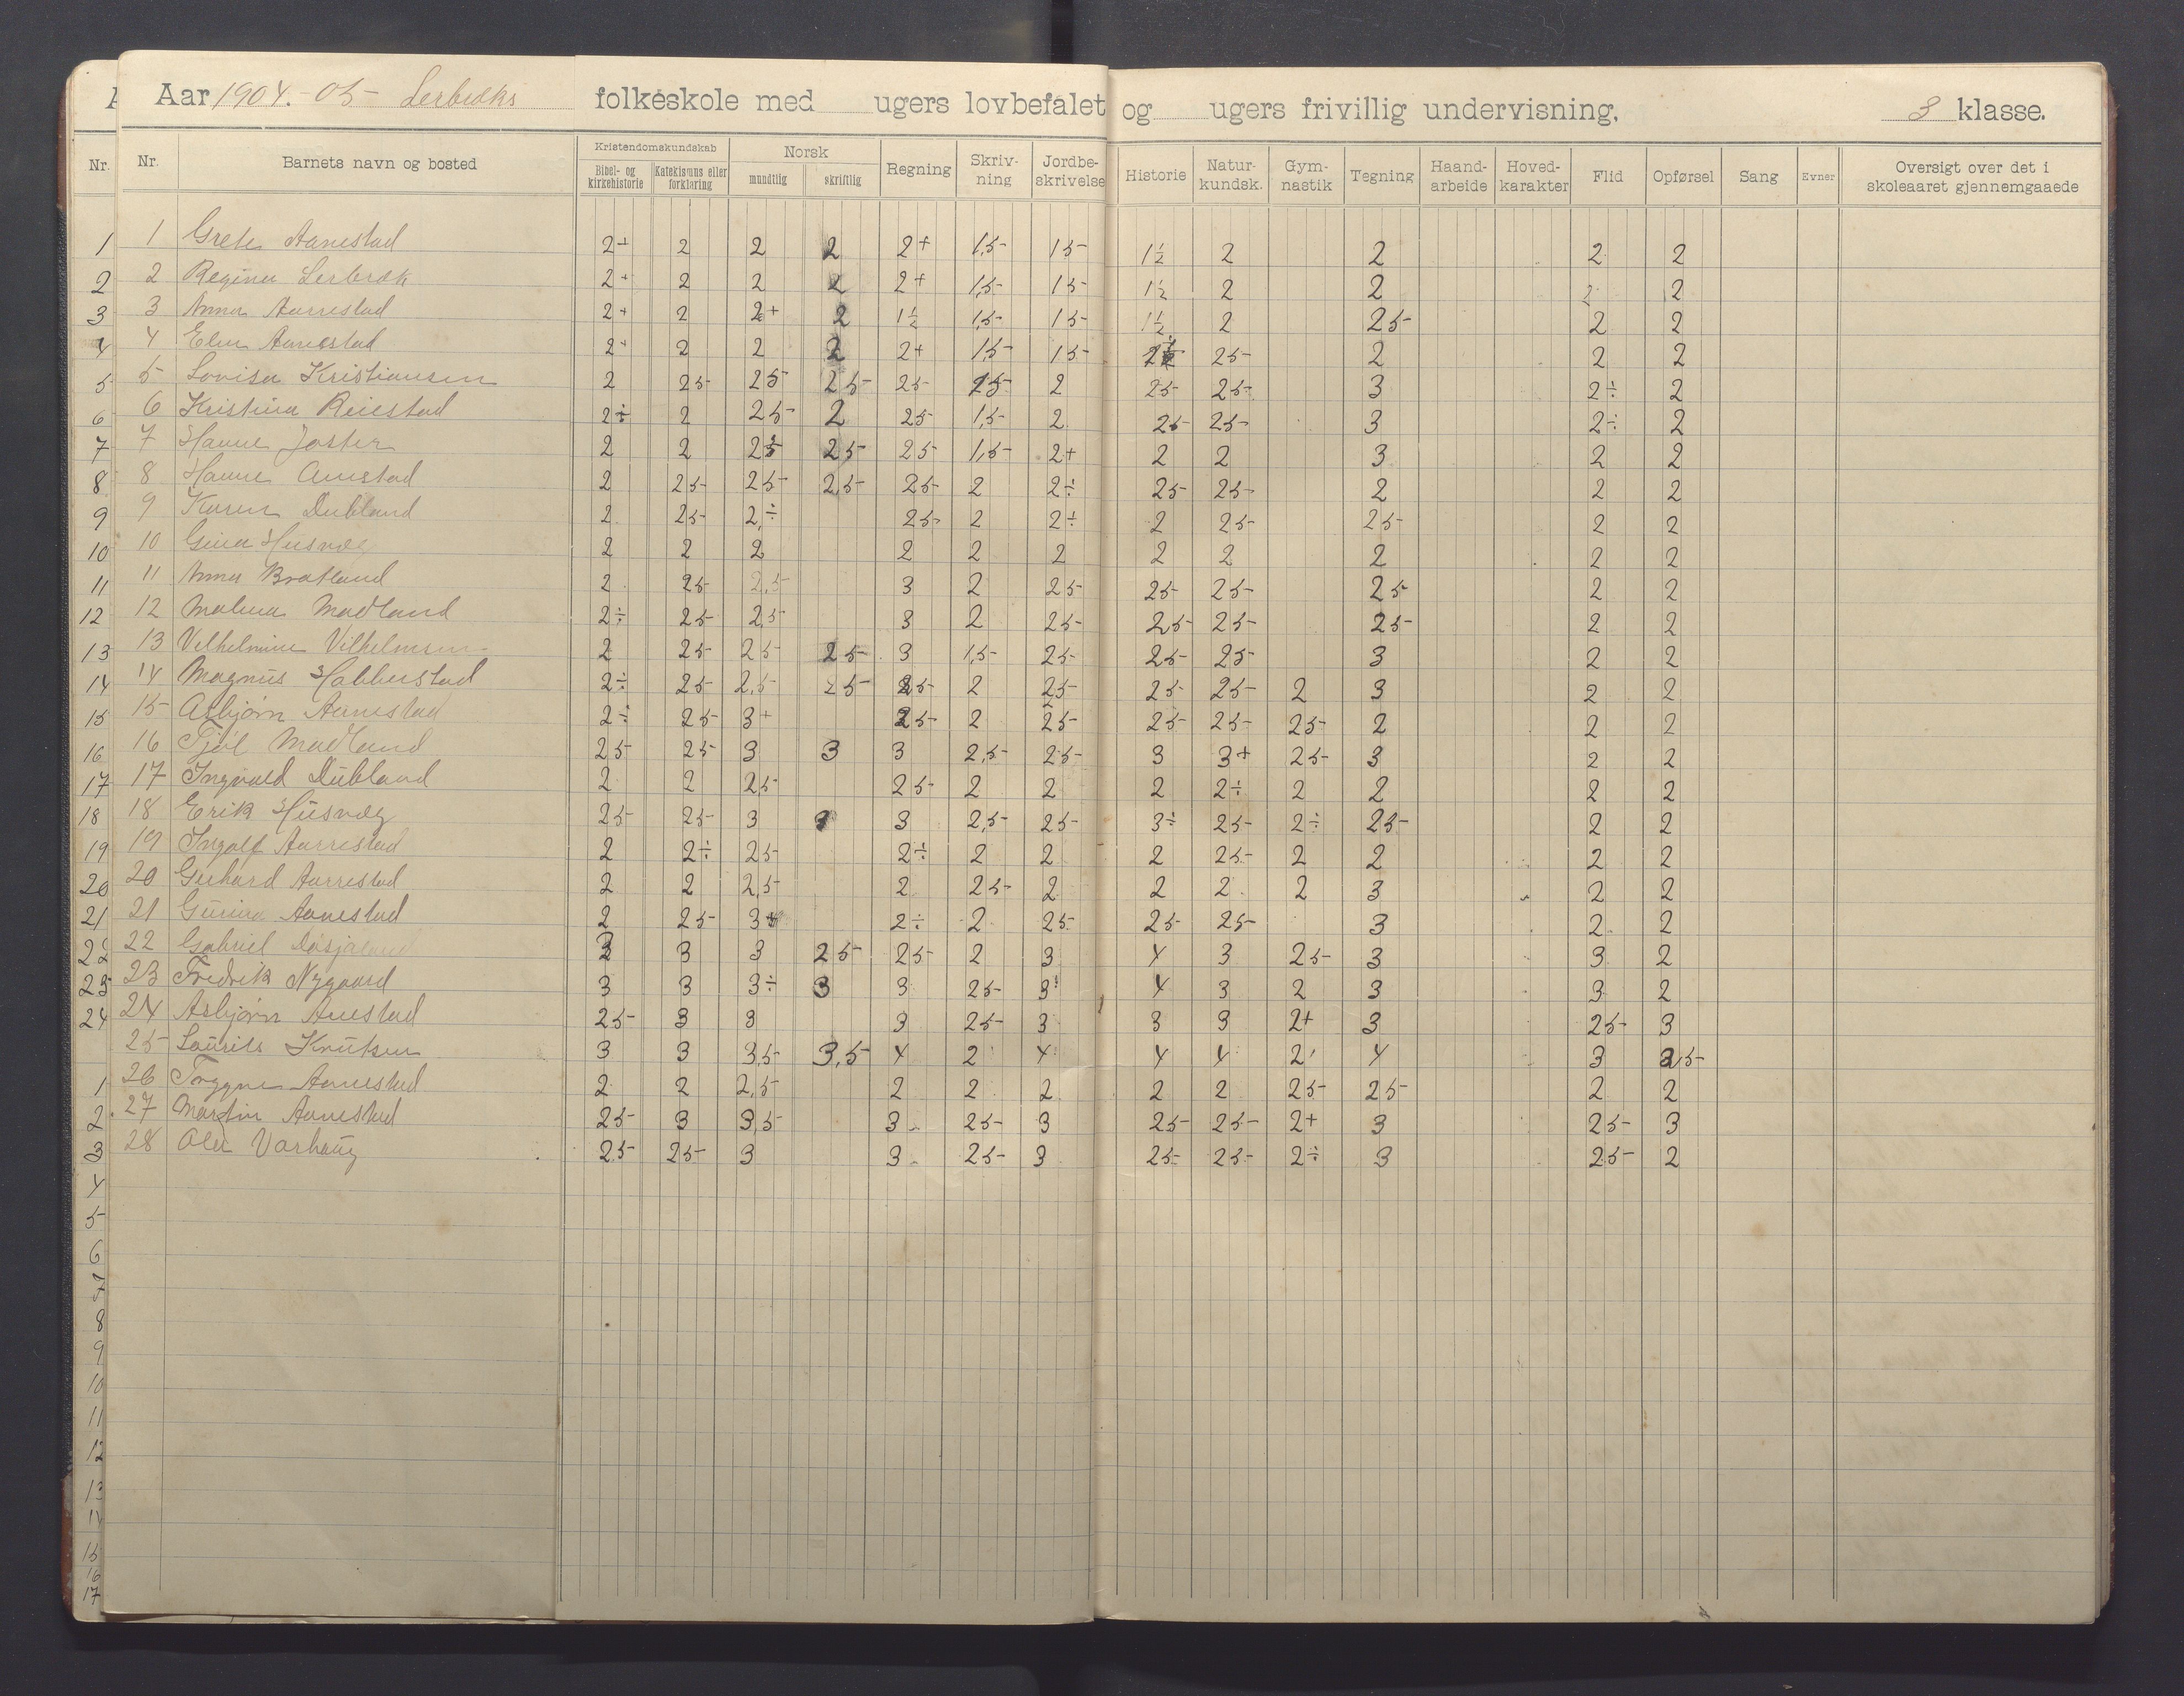 Aar 1904.-05- Lerbræks folkeskole med ugers lovbefalet og ugers frivillig undervisning. 3 klasse.
Nr. Nr. Barnets navn og bosted Kristendomskundskab Bibel- og kirkehistorie Katekismus eller forklaring Norsk mundtlig skriftlig Regning Skriv-ning Jordbe-skrivelse Historie Natur-kundsk. Gym-nastik Tegning Haand-arbeide Hoved-karakter Flid Opførsel Sang Evner Oversigt over det i skoleaaret gjennemgaaede
1 1 Grete Aanestad 2+ 2 2 2 2+ 1,5- 15- 1½ 2 2 2 2
2 2 Regina Lerbræk 2+ 2 2 2 2+ 1,5- 15- 1½ 2 2 2 2
3 3 Anna Aarrestad 2+ 2 2+ 2 1½ 1,5- 15- 1½ 2 25- 2 2
4 4 Elen Aanestad 2+ 2 2 2 2+ 1,5- 15- 25- 2 2 2
5 5 Lovisa Kristiansen 2 25- 25- 25- 25- 25- 2 25- 25- 3 2÷ 2
6 6 Kristina 2÷ 2 25- 2 25- 1,5- 2 25- 25- 3 2÷ 2
7 7 Hanne Joster 2 2 25 25- 25- 1,5- 2+ 2 2 3 2 2
8 8 Hanne 2 25- 25- 2,5- 25- 2 2÷ 25- 25- 2 2 2
9 9 Karen Dubland 2 25- 2,÷ 25- 2 2÷ 2 25- 25- 2 2
10 10 Gina Husvæg 2 2 2 2 2 2 2 2 2 2 2
11 11 Anna Bratland 2 25- 2,5- 3 2 25- 25- 25- 25- 2 2
12 12 Malena Madland 2÷ 25- 2,5- 3 2 25- 25- 25- 25- 2 2
13 13 Vilhelmine Vilhelmsen 2 25- 25- 25- 3 1,5- 25- 25- 25- 3 2 2
14 14 Magnus Habberstad 2÷ 25- 2,5- 25- 25- 2 25- 25- 25- 2 3 2 2
15 15- Asbjørn Aanestad 2÷ 25- 3+ 25- 2 25- 25- 25- 25- 2 2 2
16 16 Tjøl Madland 25- 25- 3 3 3 2,5- 25- 3 3+ 25- 3 2 2
17 17 Ingvald Dubland 2 2 2,5- 25- 2 2 2 2÷ 2 2 2 2
18 18 Erik Husvæg 25- 25- 3 3 2,5- 25- 3÷ 25- 2÷ 25- 2 2
19 19 Ingolf Aarrestad 2 2÷ 25- 2÷ 2 2 2 25- 2 2 2 2
20 20 Gerhard Aarrestad 2 2 2,5- 2 25- 2 2 2 2 3 2 2
21 21 Aanestad 2 25- 3+ 2÷ 2 25- 25- 25- 3 2 2
22 22 Gabriel 3 3 3 25- 25- 2 3 4 3 25- 3 3 2
23 23 Fredrik Nygaard 3 3 3÷ 3 3 25- 3÷ 4 3 2 3 3 2
24 24 Asbjørn 25- 3 3 3 25- 3 3 3 2+ 3 25- 3
25- Laurits Knutsen 3 3 3,5- 3,5- 4 2 4 4 4 2 4 3 2,5-
1 26 Aanestad 2 2 2,5- 2 2 2 2 2 25- 25- 2 2
2 27 Martin Aanestad 25- 3 3,5- 3 25- 3 25- 25- 2+ 3 25- 3
3 28 Varhaug 25- 25- 3 3 25- 3 25- 25- 2÷ 3 25- 2
4
5
6
7
8
9
10
11
12
13
14
15
16
17